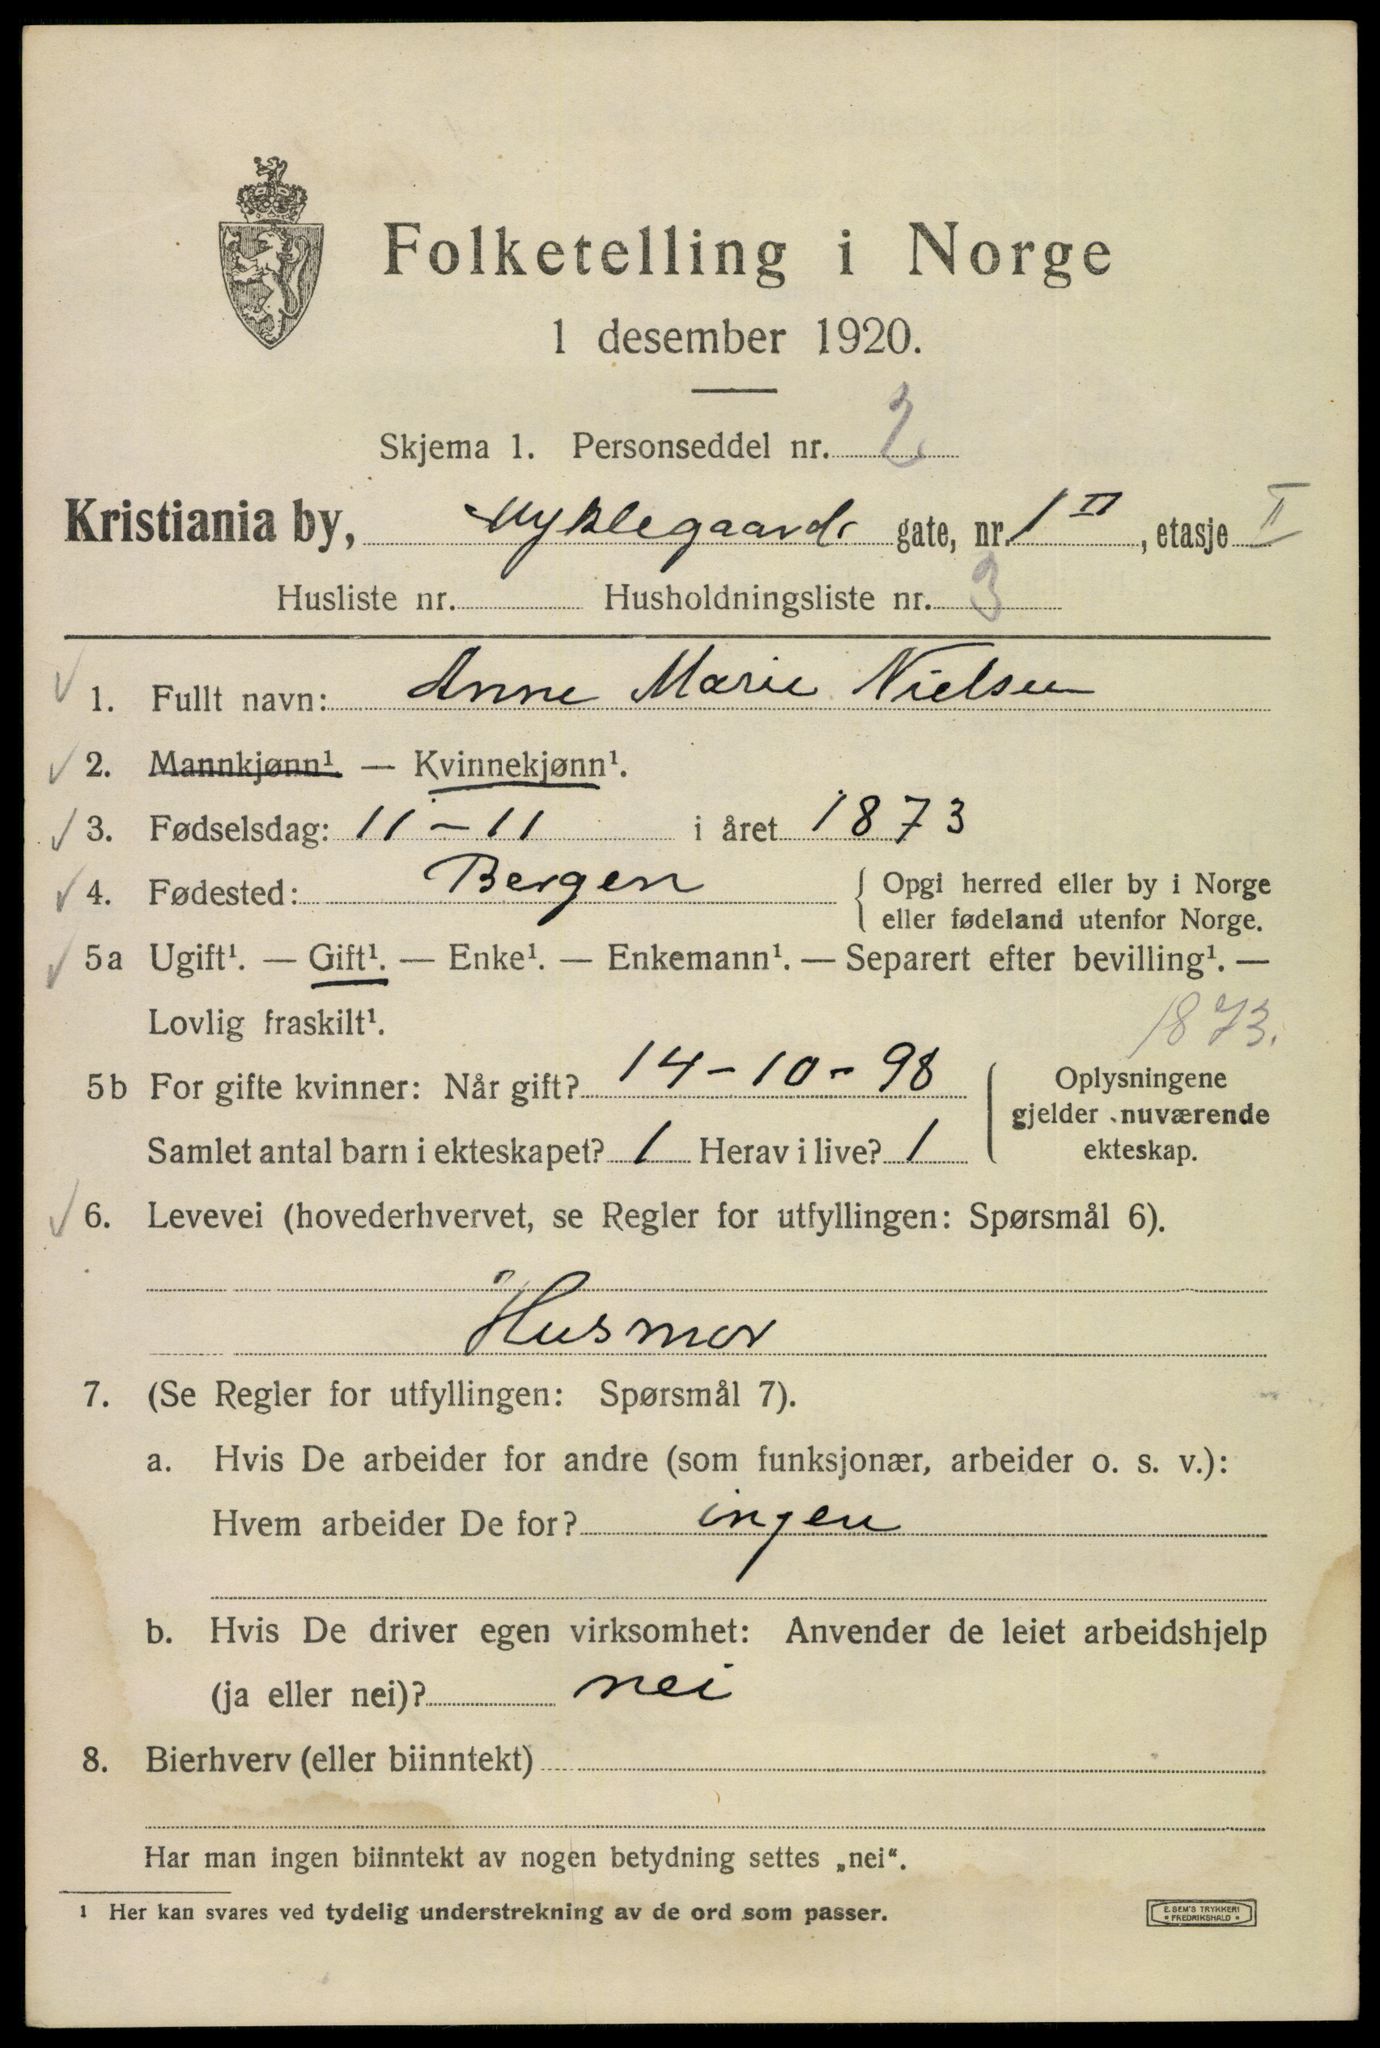 Folketelling i Norge
1 desember 1920.
Skjema 1. Personseddel nr. 2
Kristiania by, Myklegaards gate, nr. 1 II, etasje II
Husliste nr. Husholdningsliste nr. 3
1. Fullt navn: Anne Marie Nielsen
2. Mannkjønn¹. — Kvinnekjønn¹.
3. Fødselsdag: 11-11 i året 1873
4. Fødested: Bergen { Opgi herred eller by i Norge
eller fødeland utenfor Norge.
5a Ugift¹. — Gift¹. — Enke¹. — Enkemann¹. — Separert efter bevilling¹. —
Lovlig fraskilt¹.
1873.
5b For gifte kvinner: Når gift? 14-10-98
Samlet antal barn i ekteskapet? 1 Herav i live? 1
Oplysningene
gjelder nuværende
ekteskap.
6. Levevei (hovederhvervet, se Regler for utfyllingen: Spørsmål 6).
Husmor
7. (Se Regler for utfyllingen: Spørsmål 7).
a. Hvis De arbeider for andre (som funksjonær, arbeider o. s. v.):
Hvem arbeider De for? ingen
b. Hvis De driver egen virksomhet: Anvender de leiet arbeidshjelp
(ja eller nei)? nei
8. Bierhverv (eller biinntekt)
Har man ingen biinntekt av nogen betydning settes „nei“.
1 Her kan svares ved tydelig understrekning av de ord som passer.
E. SEM'S TRYKKERI
FREDRIKSHALD